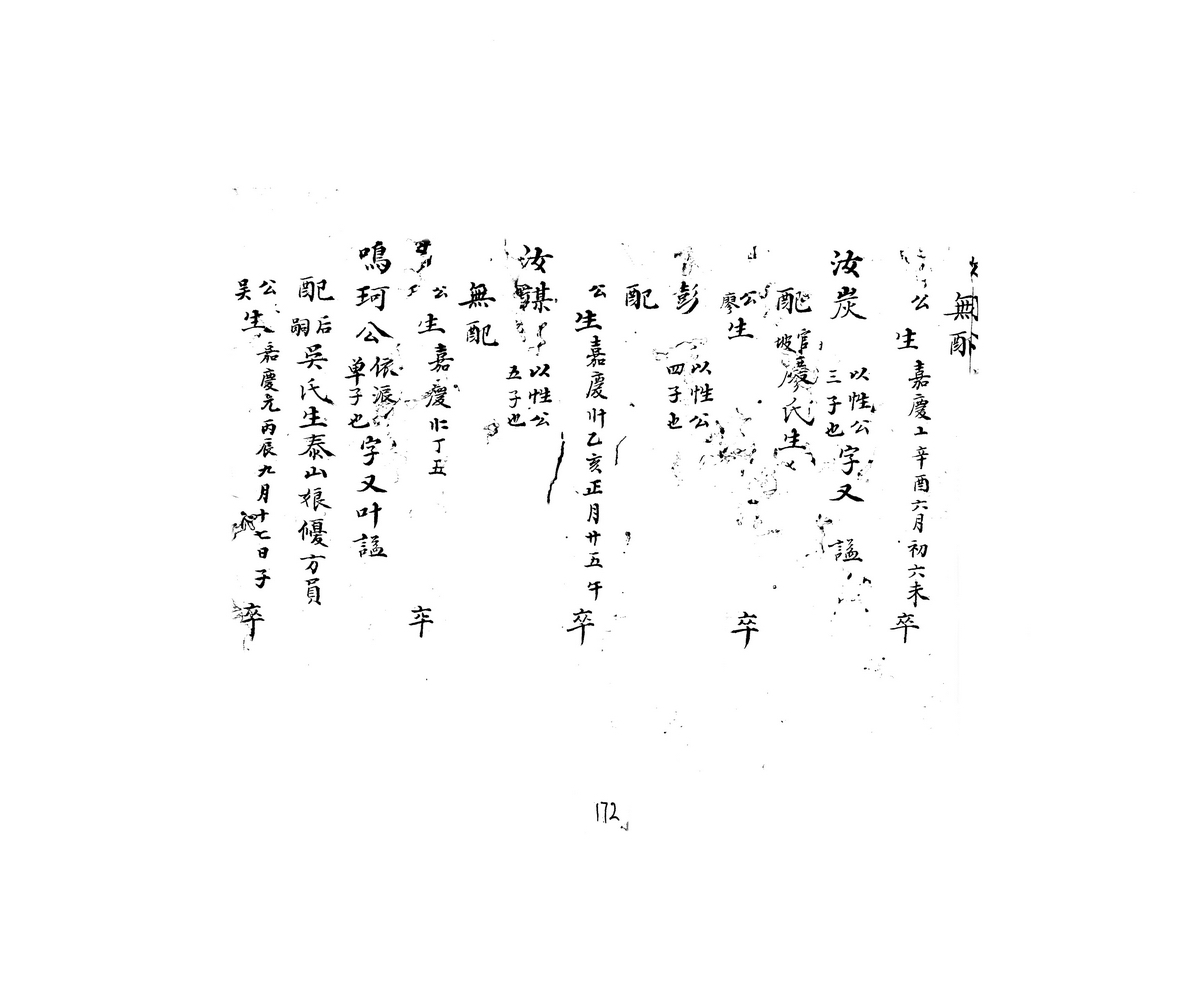 無配
公生 嘉慶〦辛酉六月初六未 卒
汝炭 以性公三子也 字又 諡
配 官坡廖氏生
公廖生 卒
彭 以性公四子也
配
公生嘉慶〢〸乙亥正月廿五午 卒
汝諆 以性公五子也
無配
公生嘉慶 丁丑 卒
鳴珂公 依派単子也 字又叶諡
配 后嗣 吳氏生泰山娘優方員
公吴生 嘉慶元丙辰九月十七日子 卒
172